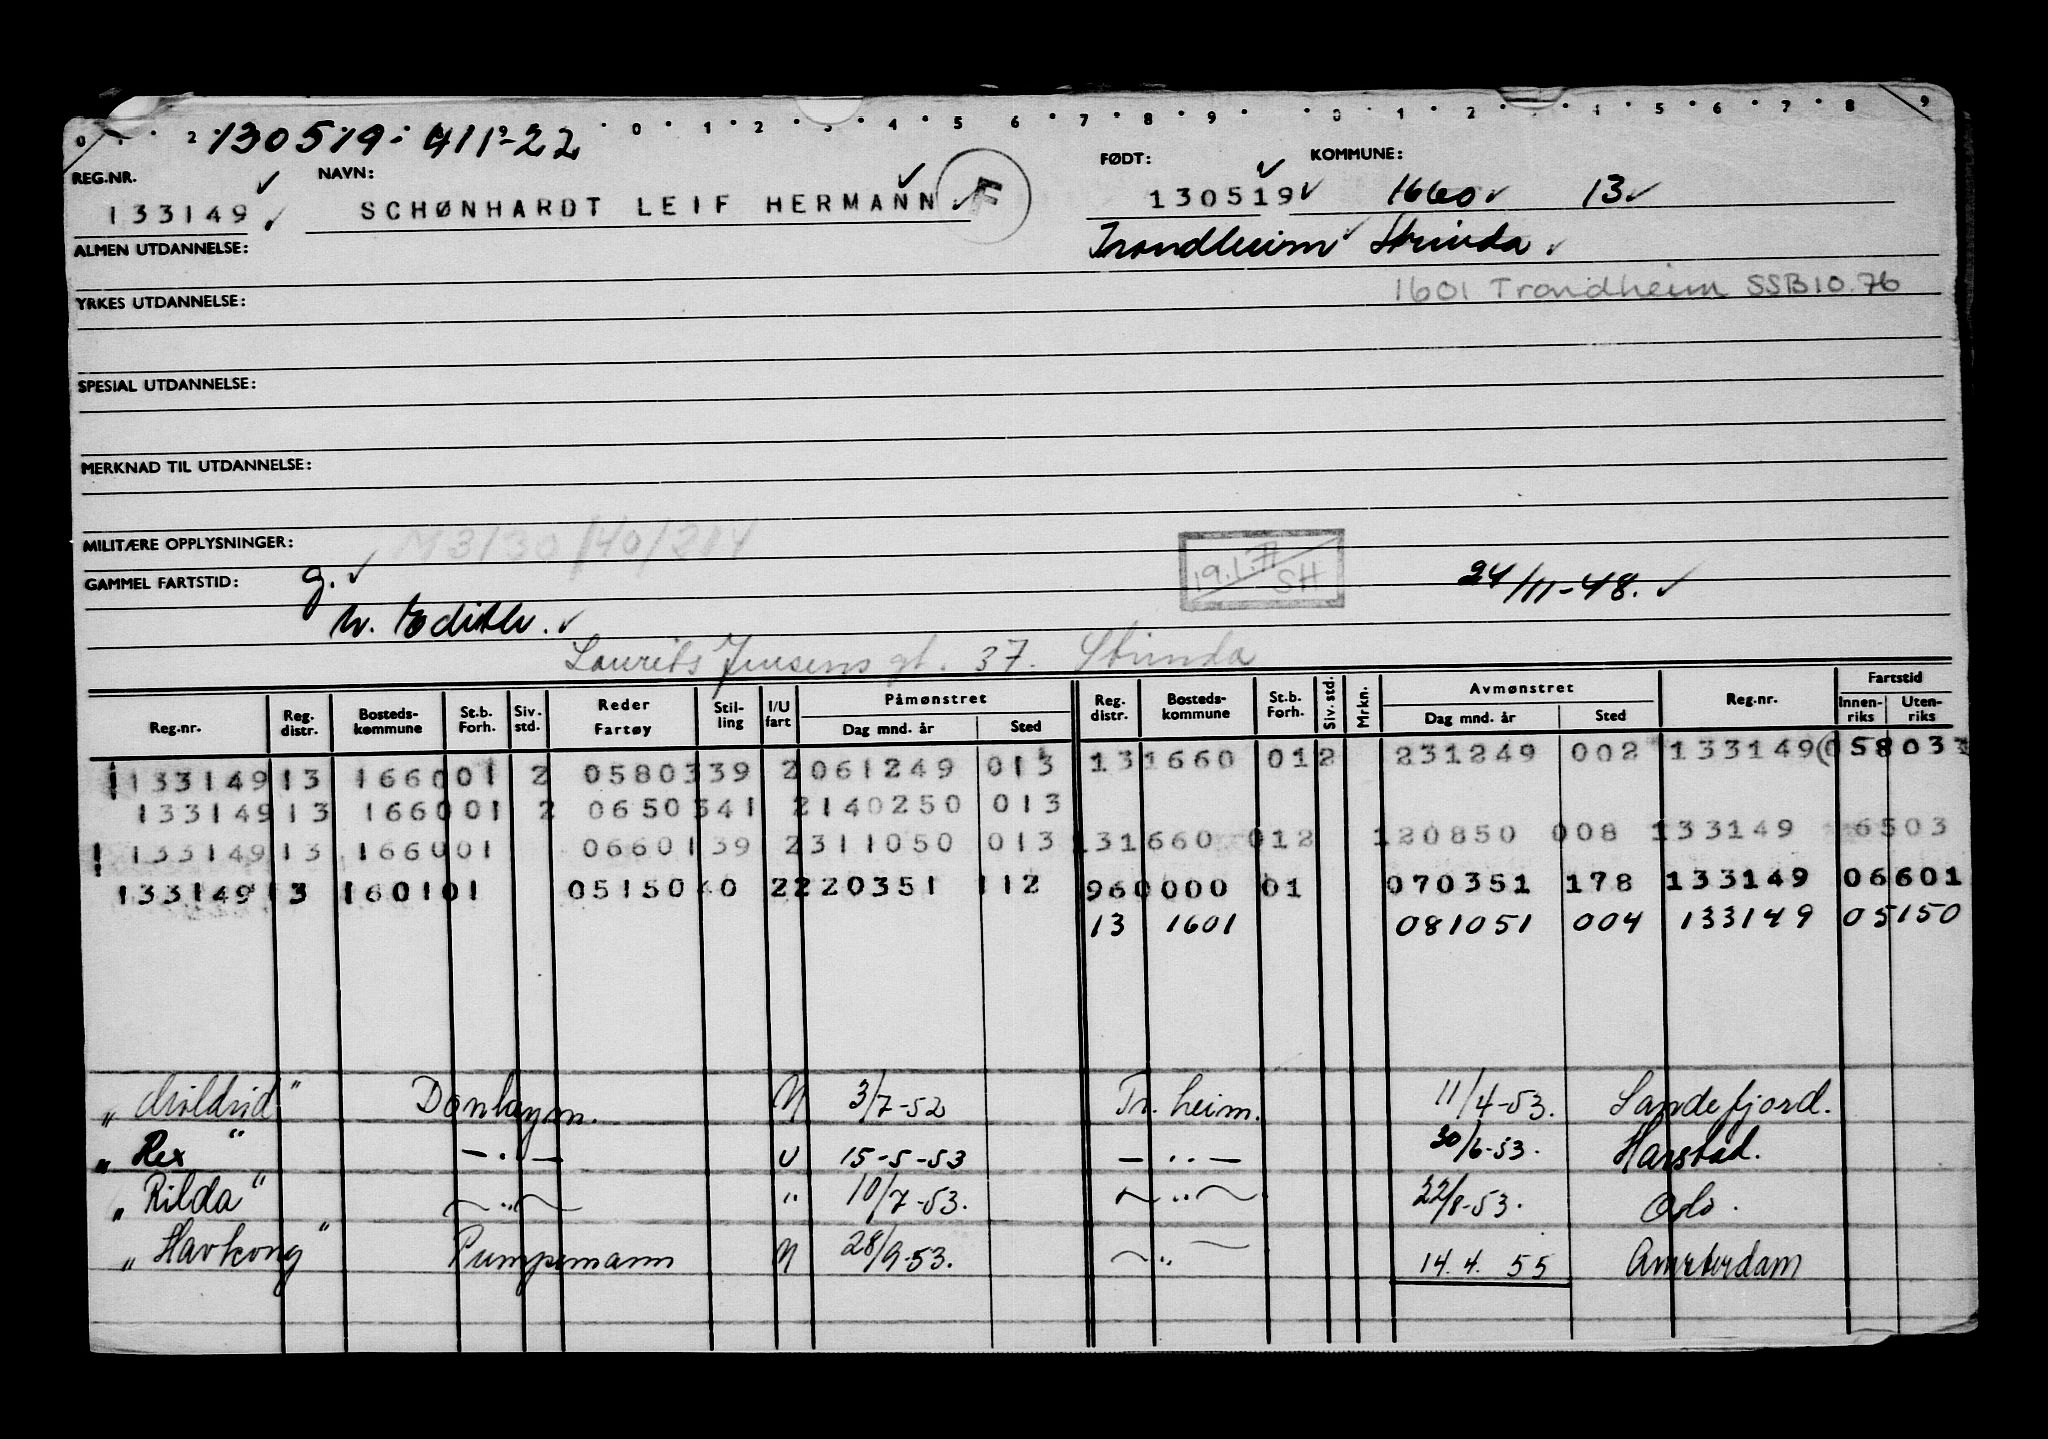 130519 - 411 - 22
REG.NR. NAVN: FØDT: KOMMUNE:
133149 SCHØNHARDT LEIF HERMANN F 130519 1660 13
ALMEN UTDANNELSE: Trondheim Strinda
YRKES UTDANNELSE: 1601 Trondheim SSB 10.76
SPESIAL UTDANNELSE:
MERKNAD TIL UTDANNELSE:
MILITÆRE OPPLYSNINGER: M3130/40/214
GAMMEL FARTSTID: g. 24/11-48.
SH
h. Edith.
Laurits Jensens gt. 37. Strinda
Reg.nr. Reg. distr. Bosteds-kommune St.b. Forh. Siv. std. Reder Fartøy Stil-ling I/U fart Påmønstret Dag mnd. år Sted Reg. distr. Bosteds-kommune St.b. Forh. Siv. std. Mrkn. Avmønstret Dag mnd. år Sted Reg.nr. Fartstid Innen-riks Uten-riks
133149 13 1660 01 2 05803 39 2 061249 013 13 1660 01 2 231249 002 133149 05803
133149 13 1660 01 2 06503 41 2 140250 013
133149 13 1660 01 06601 39 2 311050 013 13 1660 01 2 120850 008 133149 6503
133149 13 1601 01 05150 40 2 220351 112 96 0000 01 070351 178 133149 06601
13 1601 081051 004 133149 05150
Donkeym. N 3/7-52 Tr. heim. 11/4-53. Sandefjord.
"Rex" -"- U 15-5-53 -"- 30/6-53. Harstad.
"Rilda" -"- " 10/7-53. -"- 22/8-53. Oslo.
"Havkong" Pumpemann N 28/9-53. -"- 14.4.55 Amsterdam